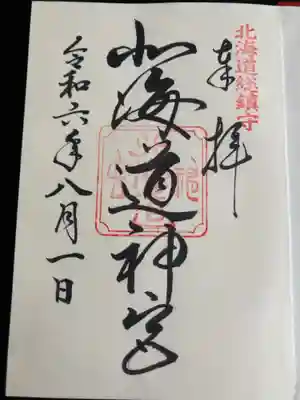 北海道総鎮守
奉拝
北海道神宮
令和六年八月一日